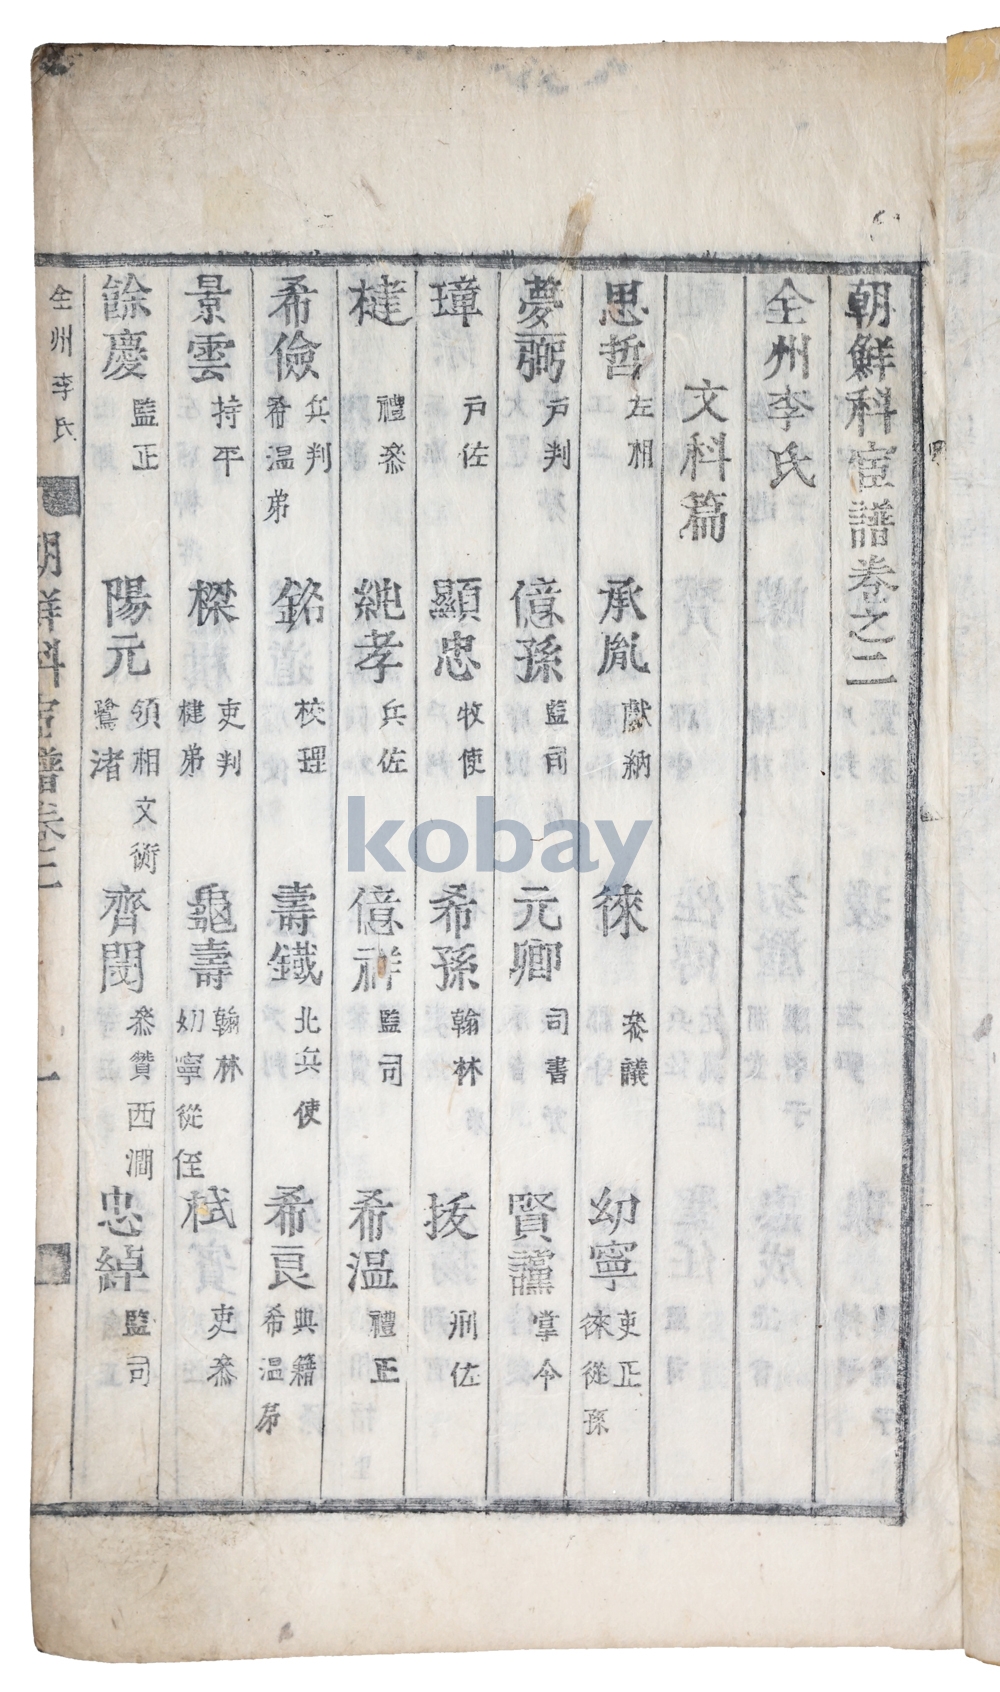 朝鮮科宦譜卷之二
全州李氏
文科篇
思哲 左相 承胤 獻納 徠 叅議 幼寧 吏正 徠從孫
夢弼 戶判 億孫 監司 元卿 司書 賢讜 掌令
璋 戶佐 顯忠 牧使 希孫 翰林 拔 刑佐
㨗 禮叅 純孝 兵佐 億祥 監司 希溫 禮正
希儉 兵判 希溫弟 銘 校理 壽鐵 北兵使 希良 典籍 希溫弟
景雲 持平 樑 吏判 楗弟 龜壽 翰林 幼寧從侄 栻 吏叅
餘慶 監正 陽元 領相 文衡 鷺渚 齊閔 叅贊 西澗 忠綽 監司
全州李氏 朝鮮科宦譜卷二 一
kobay